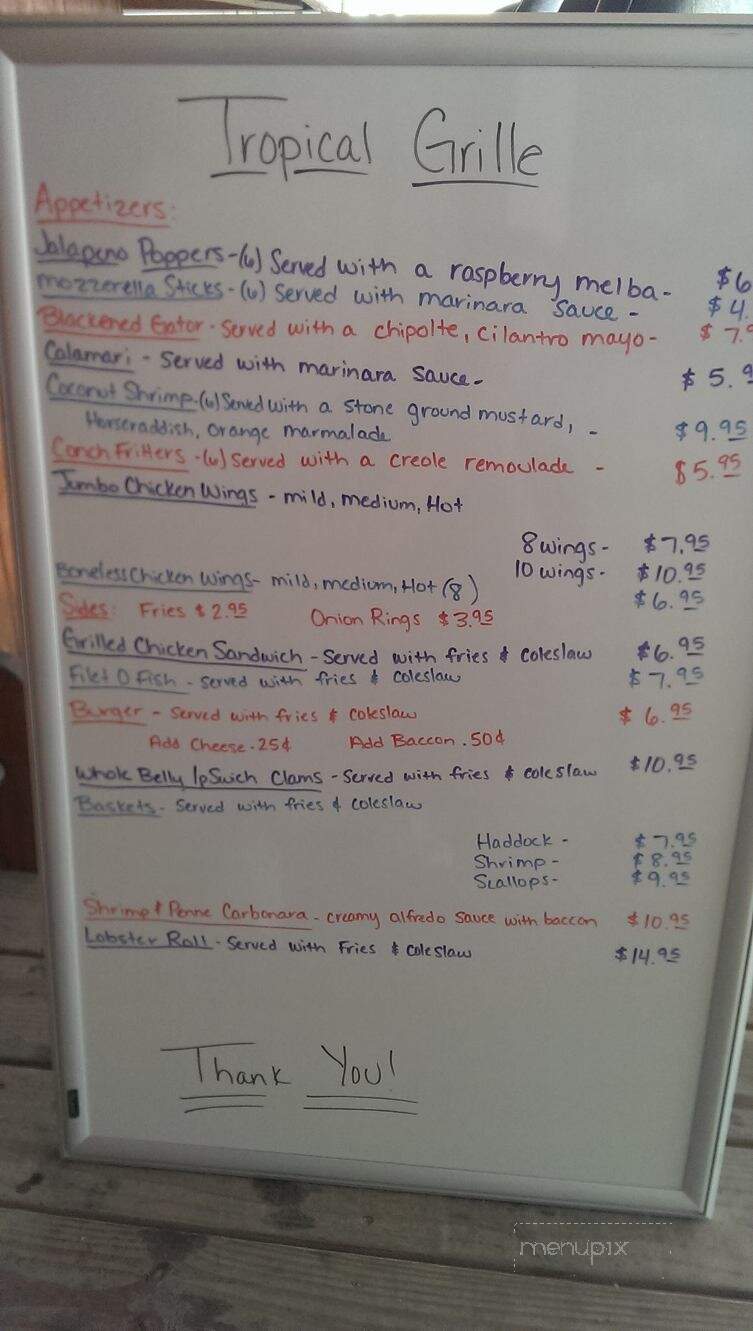 Tropical Grille
Appetizers:
Jalapeno Poppers-(6) Served with a raspberry melba- $6
Mozzerella Sticks-(6) Served with marinara sauce- $4.
Blackened Gator-Served with a chipolte, cilantro mayo- $7.9
Calamari - Served with marinara sauce- $5.9
Coconut Shrimp-(6) Served with a stone ground mustard, - $9.95
Horseraddish, orange marmalade
Conch Fritters-(6) Served with a creole remoulade - $5.95
Jumbo Chicken Wings - mild, medium, Hot
8 wings- $7.95
10 wings- $10.95
Boneless Chicken Wings- mild, medium, Hot (8) $6.95
Sides: Fries $2.95 Onion Rings $3.95
Grilled Chicken Sandwich - Served with fries & coleslaw $6.95
Filet O Fish - served with fries & coleslaw $7.95
Burger - Served with fries & coleslaw $6.95
Add Cheese .25¢ Add Baccon .50¢
Whole Belly IpSwich Clams - Served with fries & coleslaw $10.95
Baskets- Served with fries & coleslaw
Haddock - $7.95
Shrimp - $8.95
Scallops- $9.95
Shrimp & Penne Carbonara - creamy alfredo sauce with baccon $10.95
Lobster Roll - Served with Fries & coleslaw $14.95
Thank You!
menupix